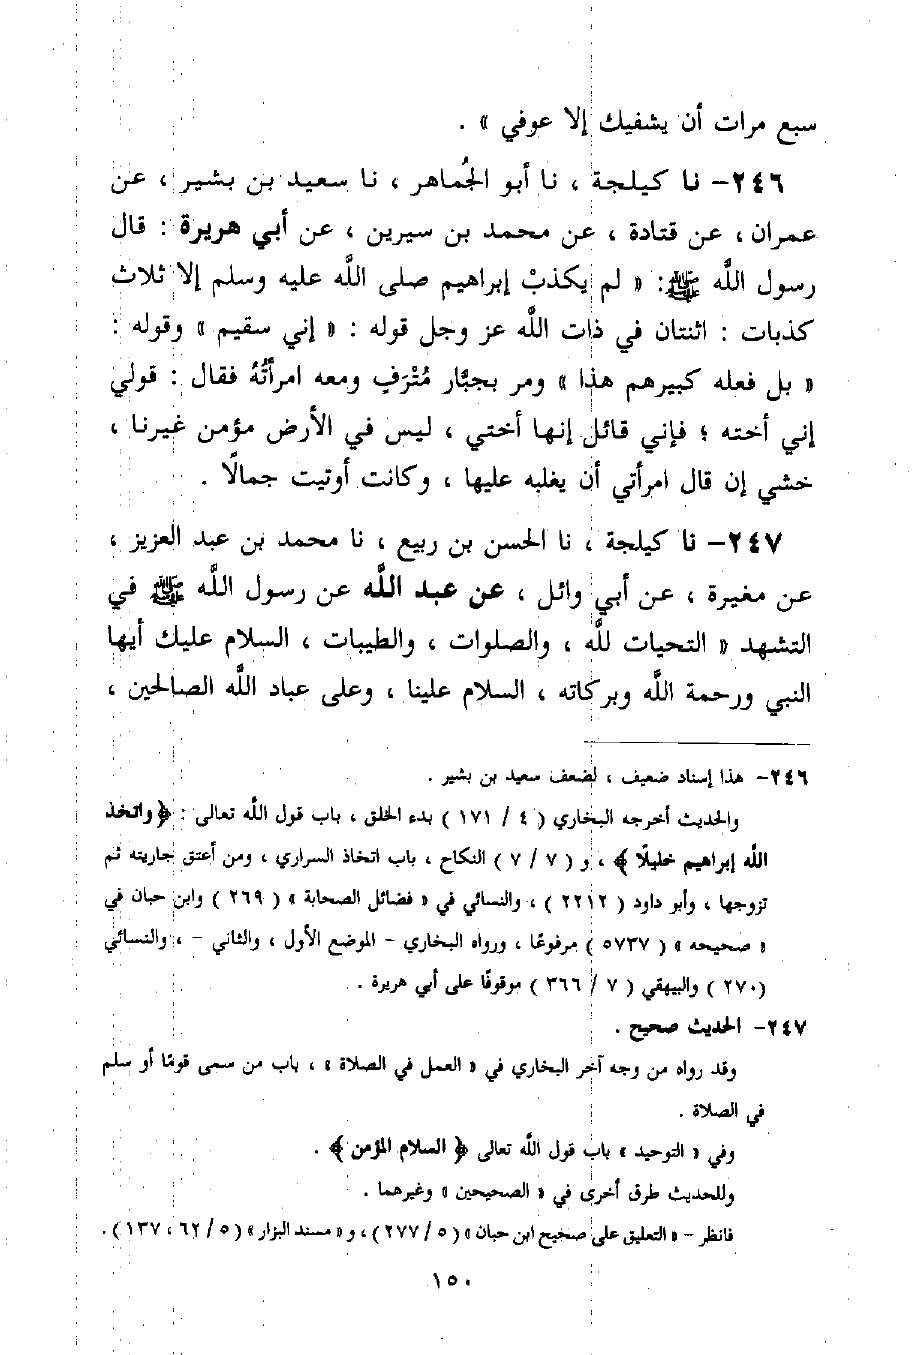 سبع مرات أن يشفيك إلا عوفي » .
٢٤٦- نا كيلجة ، نا أبو الجُماهر ، نا سعيد بن بشير ، عن
عمران ، عن قتادة ، عن محمد بن سيرين ، عن أبي هريرة : قال
رسول اللَّه ﷺ: « لم يكذبْ إبراهيم صلى اللَّه عليه وسلم إلا ثلاث
كذبات : اثنتان في ذات اللَّه عز وجل قوله : « إني سقيم » وقوله :
« بل فعله كبيرهم هذا » ومر بجبَّار مُتْرَفٍ ومعه امرأتُهُ فقال : قولي
إني أخته ؛ فإني قائل إنها أختي ، ليس في الأرض مؤمن غيرنا ،
خشي إن قال امرأتي أن يغلبه عليها ، وكانت أوتيت جمالًا .
٢٤٧- نا كيلجة ، نا الحسن بن ربيع ، نا محمد بن عبد العزيز ،
عن مغيرة ، عن أبي وائل ، عن عبد اللَّه عن رسول اللَّه ﷺ في
التشهد « التحيات للَّه ، والصلوات ، والطيبات ، السلام عليك أيها
النبي ورحمة اللَّه وبركاته ، السلام علينا ، وعلى عباد اللَّه الصالحين ،
٢٤٦- هذا إسناد ضعيف ، لضعف سعيد بن بشير .
والحديث أخرجه البخاري ( ٤ / ١٧١ ) بدء الخلق ، باب قول اللَّه تعالى : ﴿ واتخذ
اللَّه إبراهيم خليلًا ﴾ ، و ( ٧ / ٧ ) النكاح ، باب اتخاذ السراري ، ومن أعتق جاريته ثم
تزوجها ، وأبو داود ( ٢٢١٢ ) ، والنسائي في « فضائل الصحابة » ( ٢٦٩ ) وابن حبان في
« صحيحه » ( ٥٧٣٧ ) مرفوعًا ، ورواه البخاري - الموضع الأول ، والثاني - ، والنسائي
(٢٧٠ ) والبيهقي ( ٧ / ٣٦٦ ) موقوفًا على أبي هريرة .
٢٤٧- الحديث صحيح .
وقد رواه من وجه آخر البخاري في « العمل في الصلاة » ، باب من سمى قومًا أو سلم
في الصلاة .
وفي « التوحيد » باب قول اللَّه تعالى ﴿ السلام المؤمن ﴾ .
وللحديث طرق أخرى في « الصحيحين » وغيرهما .
فانظر - « التعليق على صحيح ابن حبان » ( ٥ / ٢٧٧ ) ، و « مسند البزار » ( ٥ / ٦٢ ، ١٣٧ ) .
١٥٠